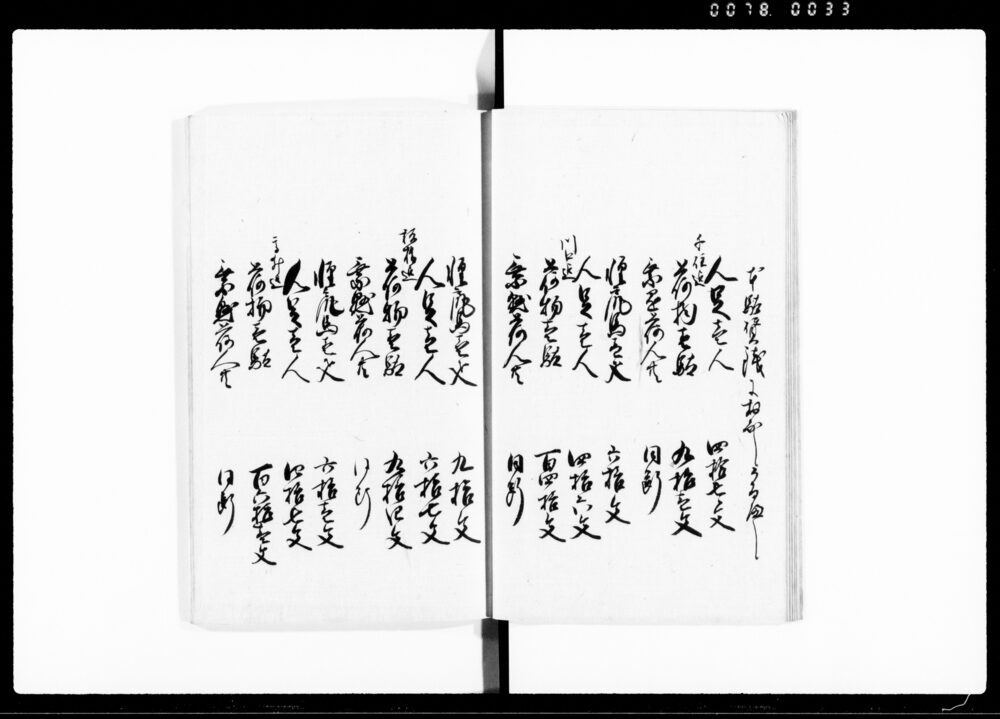 0078. 0033
千住迄
人足壱人 四拾七文
荷物壱駄 九拾壱文
乗懸荷人共 同断
軽尻馬壱疋 六拾文
川口迄
人足壱人 四拾六文
荷物壱駄 百四拾文
乗懸荷人共 同断
軽尻馬壱疋 九拾文
板橋迄
人足壱人 六拾七文
荷物壱駄 九拾四文
乗懸荷人共 同断
軽尻馬壱疋 六拾壱文
人足壱人 四拾七文
荷物壱駄 百六拾壱文
乗懸荷人共 同断